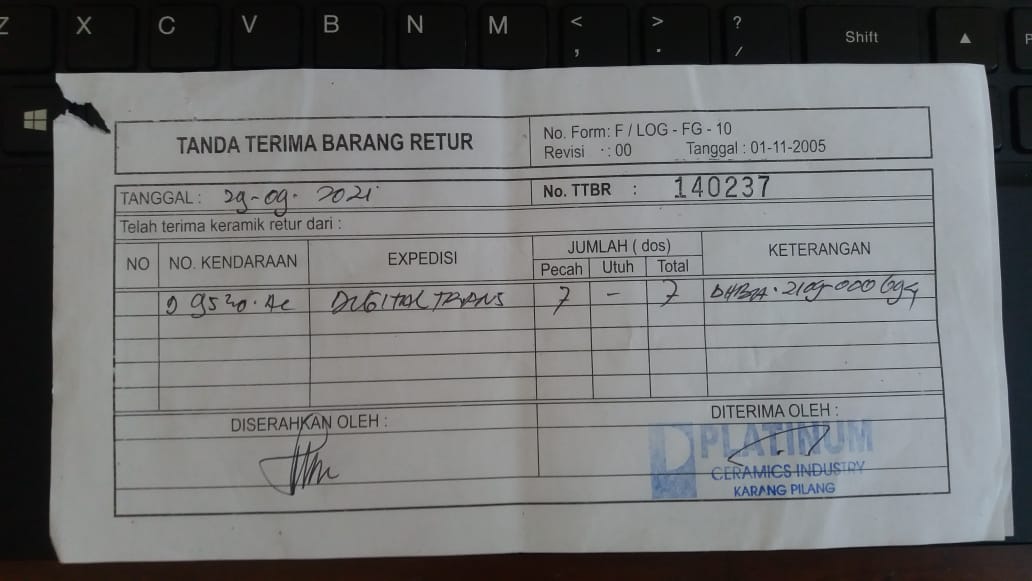 Z X C V B N M < , > . ? / Shift ▲
TANDA TERIMA BARANG RETUR
No. Form: F / LOG - FG - 10
Revisi : 00 Tanggal : 01-11-2005
TANGGAL : 29-09-2021
No. TTBR : 140237
Telah terima keramik retur dari :
NO NO. KENDARAAN EXPEDISI JUMLAH ( dos) KETERANGAN
Pecah Utuh Total
DIGITAL TRANS 7 - 7
DISERAHKAN OLEH : DITERIMA OLEH :
PLATINUM
CERAMICS INDUSTRY
KARANG PILANG